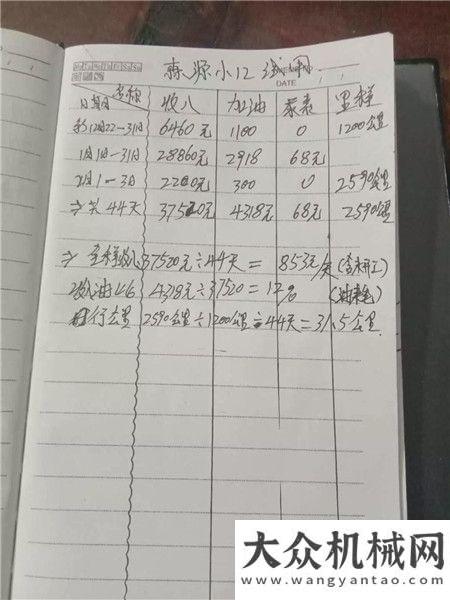 森源小12 费用
DATE
名称
日期 收入 加油 尿素 里程
12月22-31日 6460元 1100 0 1200公里
1月1日-31日 28860元 2918 68元
2月1-3日 2200元 300 0 2590公里
⇒共44天 37520元 4318元 68元 2590公里
⇒ 37520元÷44天= 853元/天
4318元÷37520=12%
日行公里 2590公里÷1200公里÷44天=31.5公里
大众机械网
www.wangyantao.com